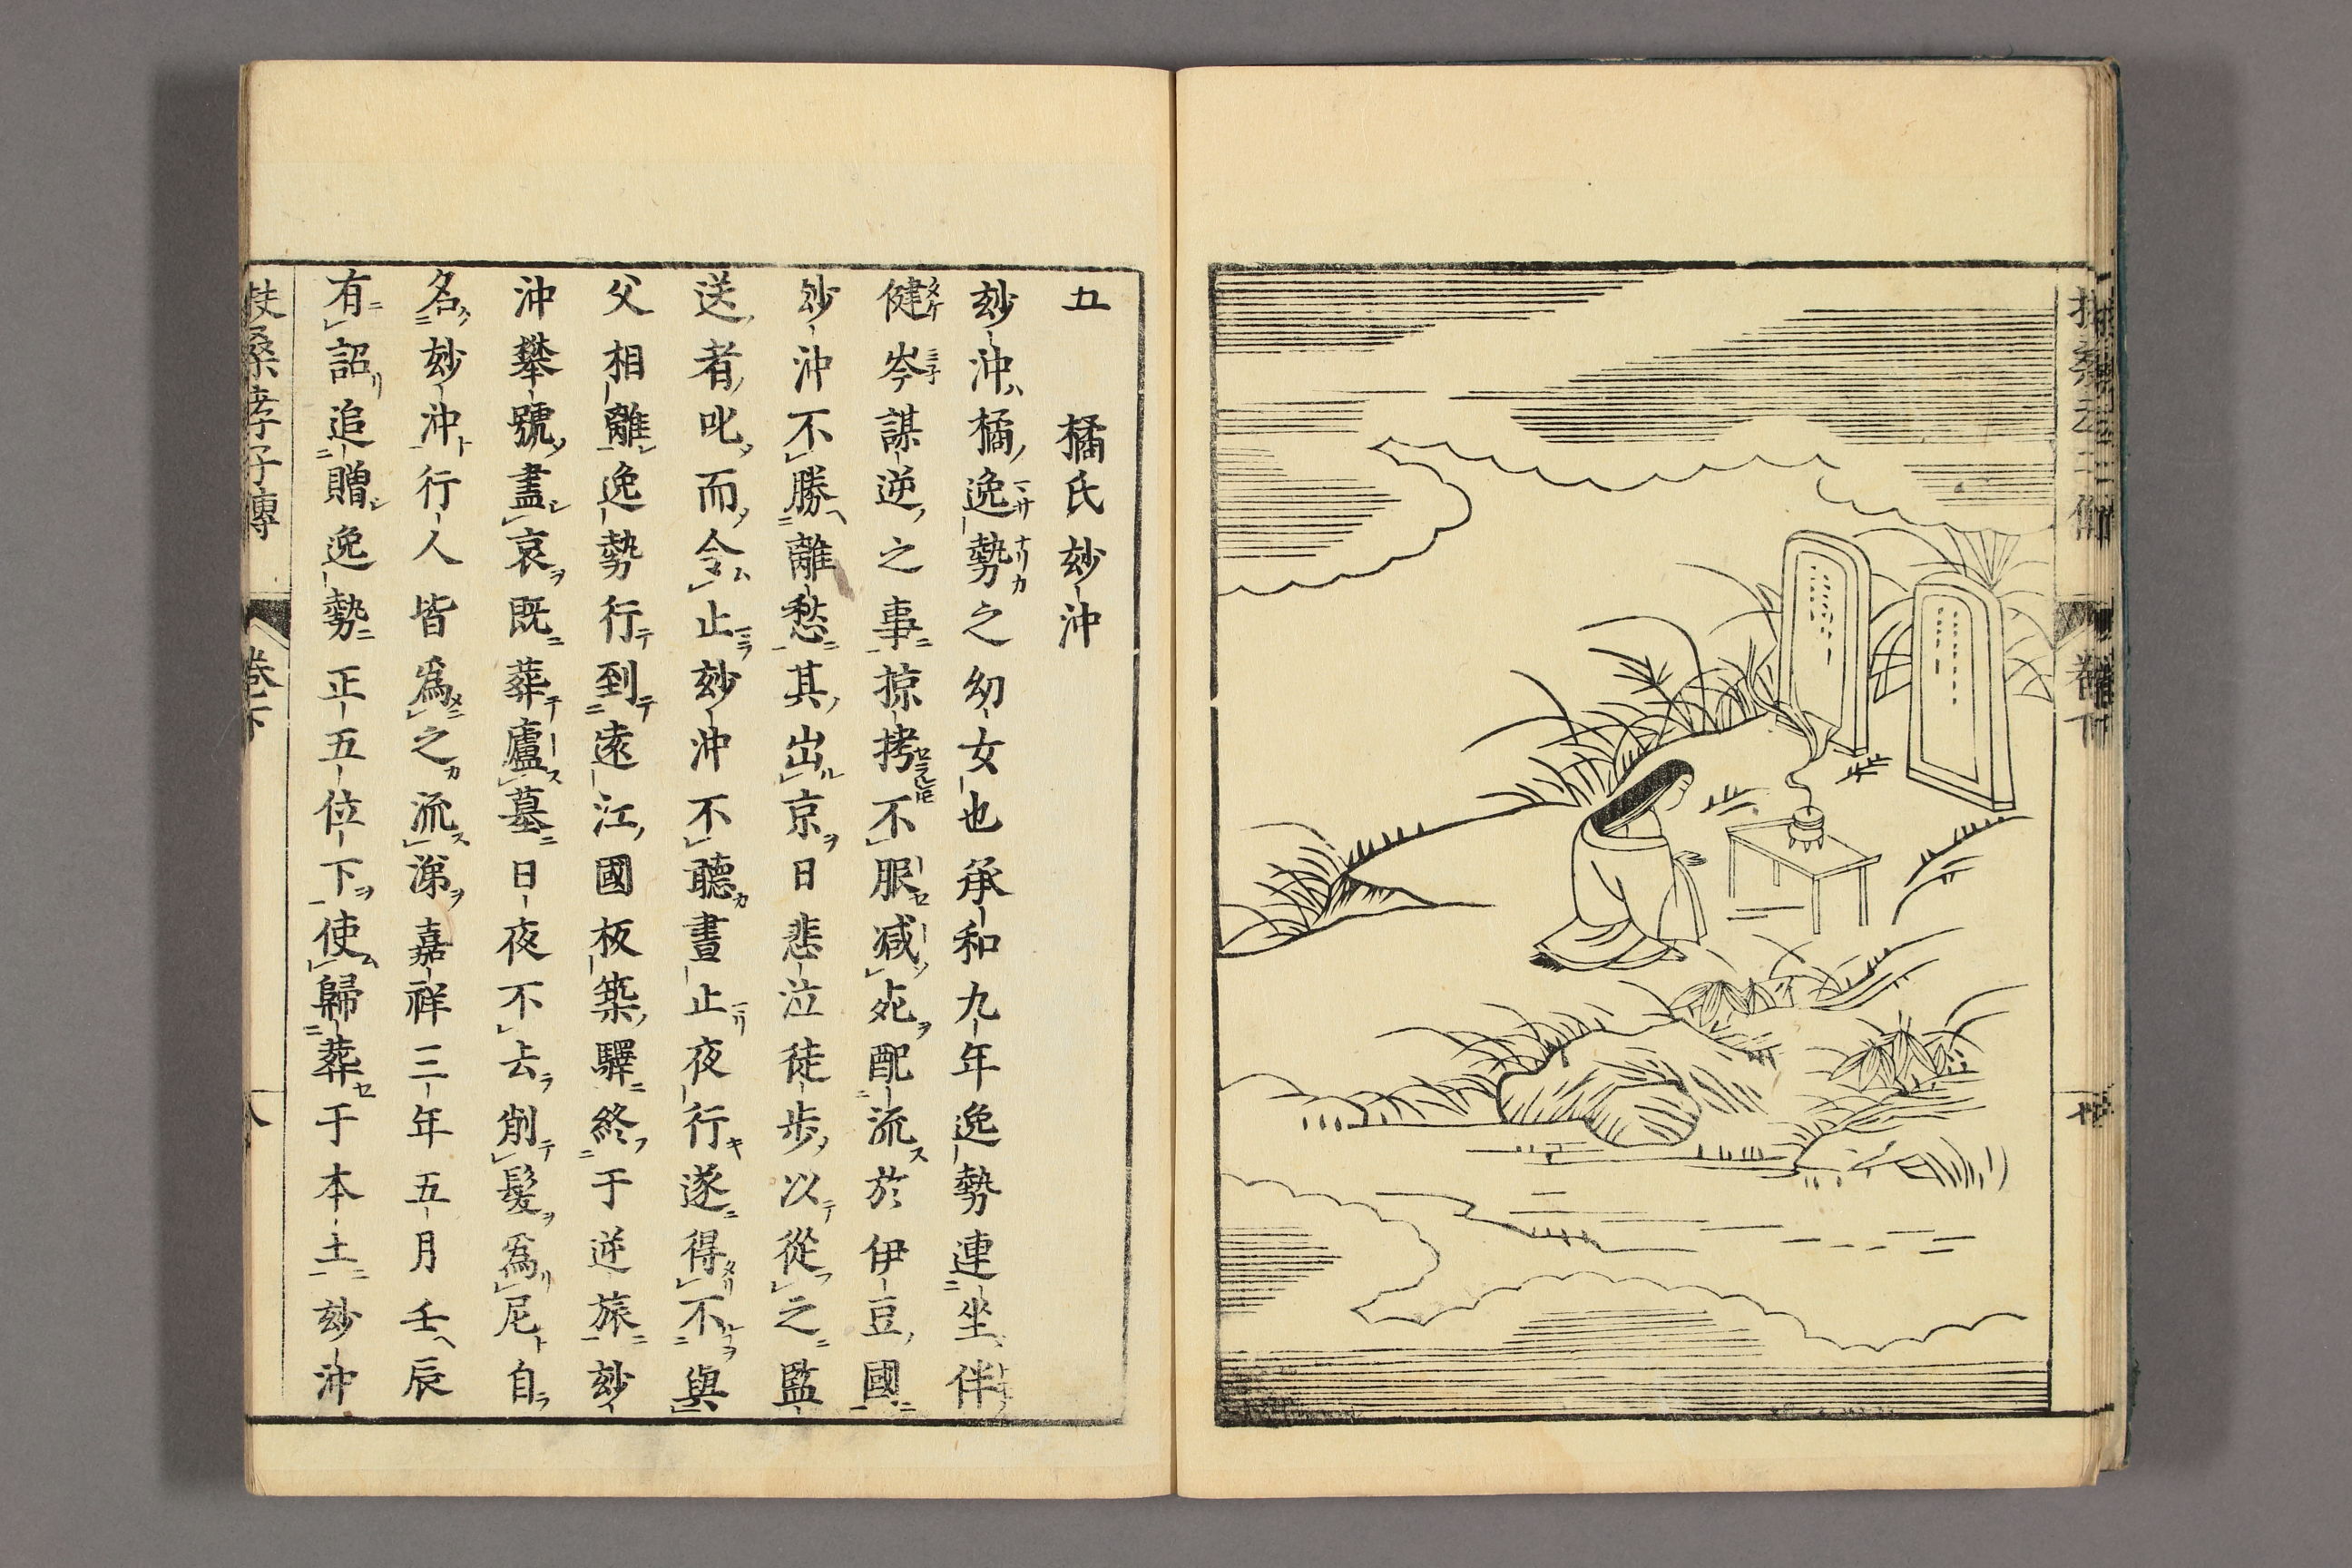 五　橘氏玅沖
玅沖橘逸勢之幼女也承和九年逸勢連坐伴
健岑謀逆之事掠拷不服减死配流於伊豆國
玅沖不勝離愁其出京日悲泣徒歩以從之監
送者叱而令止玅沖不聽晝止夜行遂得不與
父相離逸勢行到遠江國板築驛終于逆旅玅
沖攀號盡哀既葬廬墓日夜不去削髮爲尼自
名玅沖行人皆爲之流涕嘉祥三年五月壬辰
有詔追贈逸勢正五位下使歸葬于本土玅沖
扶桑孝子傳　卷下　八